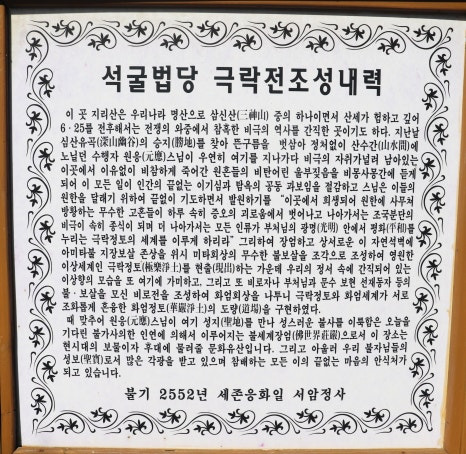 석굴법당 극락전조성내력
이 곳 지리산은 우리나라 명산으로 삼신산(三神山) 중의 하나이면서 산세가 험하고 깊어
6·25를 전후해서는 전쟁의 와중에서 참혹한 비극의 역사를 간직한 곳이기도 하다. 지난날
심산유곡(深山幽谷)의 승지(勝地)를 찾아 뜬구름을 벗삼아 정처없이 산수간(山水間)에
노닐던 수행자 원응(元應)스님이 우연히 여기를 지나가다 비극의 자취가널려 남아있는
이곳에서 이유없이 비참하게 죽어간 원혼들의 비탄어린 울부짖음을 비몽사몽간에 듣게
되어 이 모든 일이 인간의 끝없는 이기심과 탐욕의 공동 과보임을 절감하고 스님은 이들의
원한을 달래기 위하여 끝없이 기도하면서 발원하기를 "이곳에서 희생되어 원한에 사무쳐
방황하는 무수한 고혼들이 하루 속히 중오의 괴로움에서 벗어나고 나아가서는 조국분단의
비극이 속히 종식이 되며 더 나아가서는 모든 인류가 부처님의 광명(光明) 안에서 평화(平和)를
누리는 극락정토의 세계를 이루게 하리라" 그리하여 장엄하고 상서로운 이 자연석벽에
아미타불 지장보살 존상을 위시 미타회상의 무수한 불보살을 조각으로 조성하여 영원한
이상세계인 극락정토(極樂淨土)를 현출(現出)하는 가운데 우리의 정서 속에 간직되어 있는
이상향의 모습을 또 여기에 가미하고, 그리고 또 비로자나 부처님과 문수 보현 선재동자 등의
불·보살을 모신 비로전을 조성하여 화엄회상을 나투니 극락정토와 화엄세계가 서로
조화롭게 혼융한 화엄정토(華嚴淨土)의 도량(道場)을 구현하였다.
때 맞추어 원응(元應)스님이 여기 성지(聖地)를 만나 성스러운 불사를 이룩함은 오늘을
기다린 불가사의한 인연에 의해서 이루어지는 불세계장엄(佛世界莊嚴)으로서 이 장소는
현시대의 보물이자 후대에 물려줄 문화유산입니다. 그리고 아울러 우리 불자님들의
성보(聖寶)로서 많은 각광을 받고 있으며 참배하는 모든 이의 끝없는 마음의 안식처가
되고 있습니다.
불기 2552년 세존응화일 서암정사